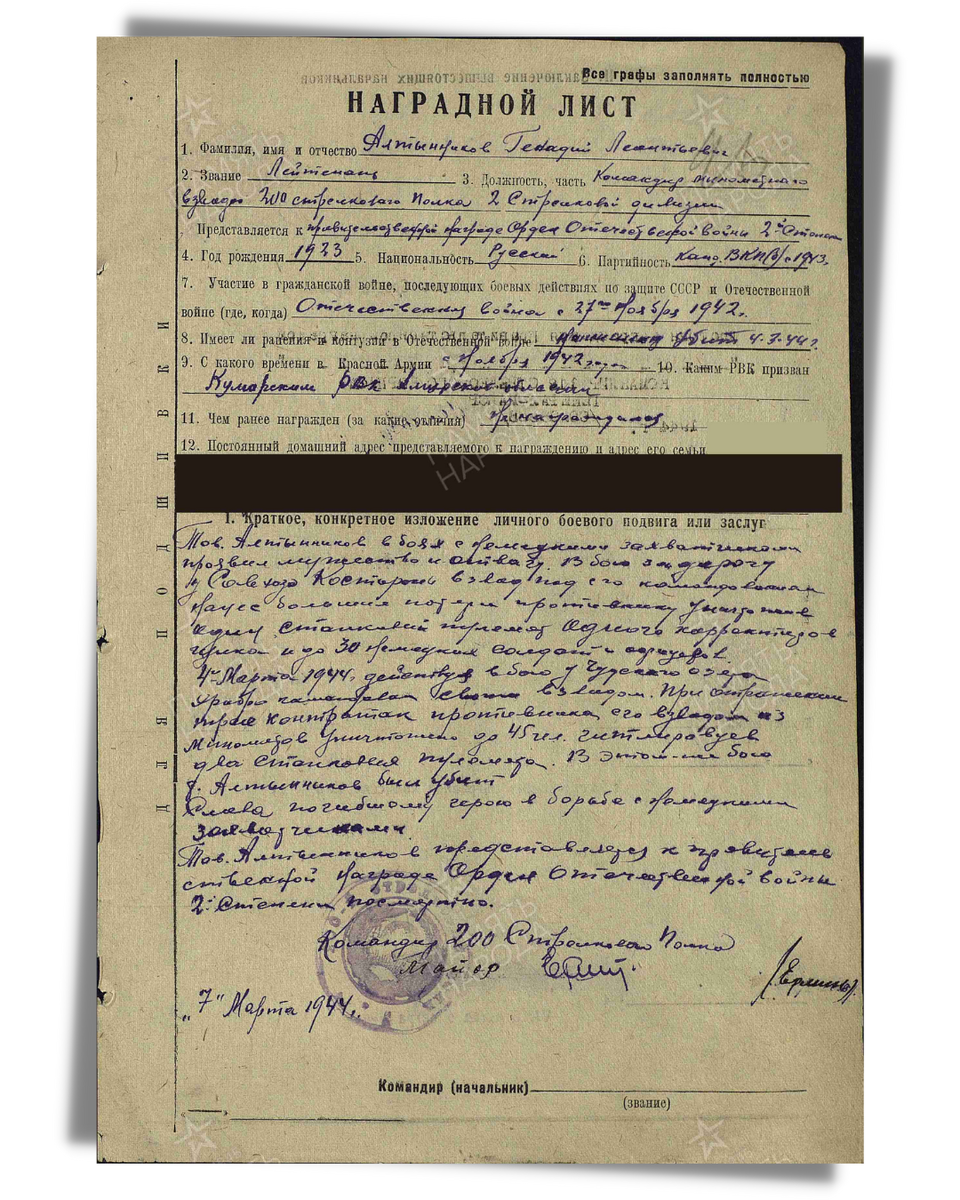 Все графы заполнять полностью
НАГРАДНОЙ ЛИСТ
1. Фамилия, имя и отчество Алтынников Генадий Леонтьевич
2. Звание Лейтенант 3. Должность, часть Командир минометного
взвода 200 стрелкового Полка 2 Стрелковой дивизии
Представляется к правительственной награде Орден Отечественной войны 2й Степени
4. Год рождения 1923 5. Национальность Русский 6. Партийность Канд. ВКП(б) с 1943г.
7. Участие в гражданской войне, последующих боевых действиях по защите СССР и Отечественной
войне (где, когда) Отечественная война с 27го Ноября 1942г.
8. Имеет ли ранения и контузии в Отечественной войне убит 4.3.44г.
9. С какого времени в Красной Армии с Ноября 1942 года 10. Каким РВК призван
Кумарским РВК Амурской области
11. Чем ранее награжден (за какие отличия) Не награждался
12. Постоянный домашний адрес представляемого к награждению и адрес его семьи
I. Краткое, конкретное изложение личного боевого подвига или заслуг
Тов. Алтынников в боях с немецкими захватчиками
проявил мужество и отвагу. В бою за дорогу
у взвод под его командованием
нанес большие потери противнику уничтожив
один станковый пулемет одного корректиров
щика и до 30 немецких солдат и офицеров.
4го Марта 1944г. действуя в бою у Чудского озера
храбро командовал своим взводом. При отражении
трех контратак противника его взводом из
минометов уничтожено до 45 чел. гитлеровцев
два станковых пулемета. В этом-же бою
т. Алтынников был убит
Слава погибшему герою в борьбе с немецкими
захватчиками
Тов. Алтынников представляется к правитель
ственной награде Орден Отечественной войны
2й Степени посмертно.
Командир 200 Стрелкового Полка
майор
„7" Марта 1944г.
Командир (начальник)
(звание)
ДЛЯ ПОДШИВКИ